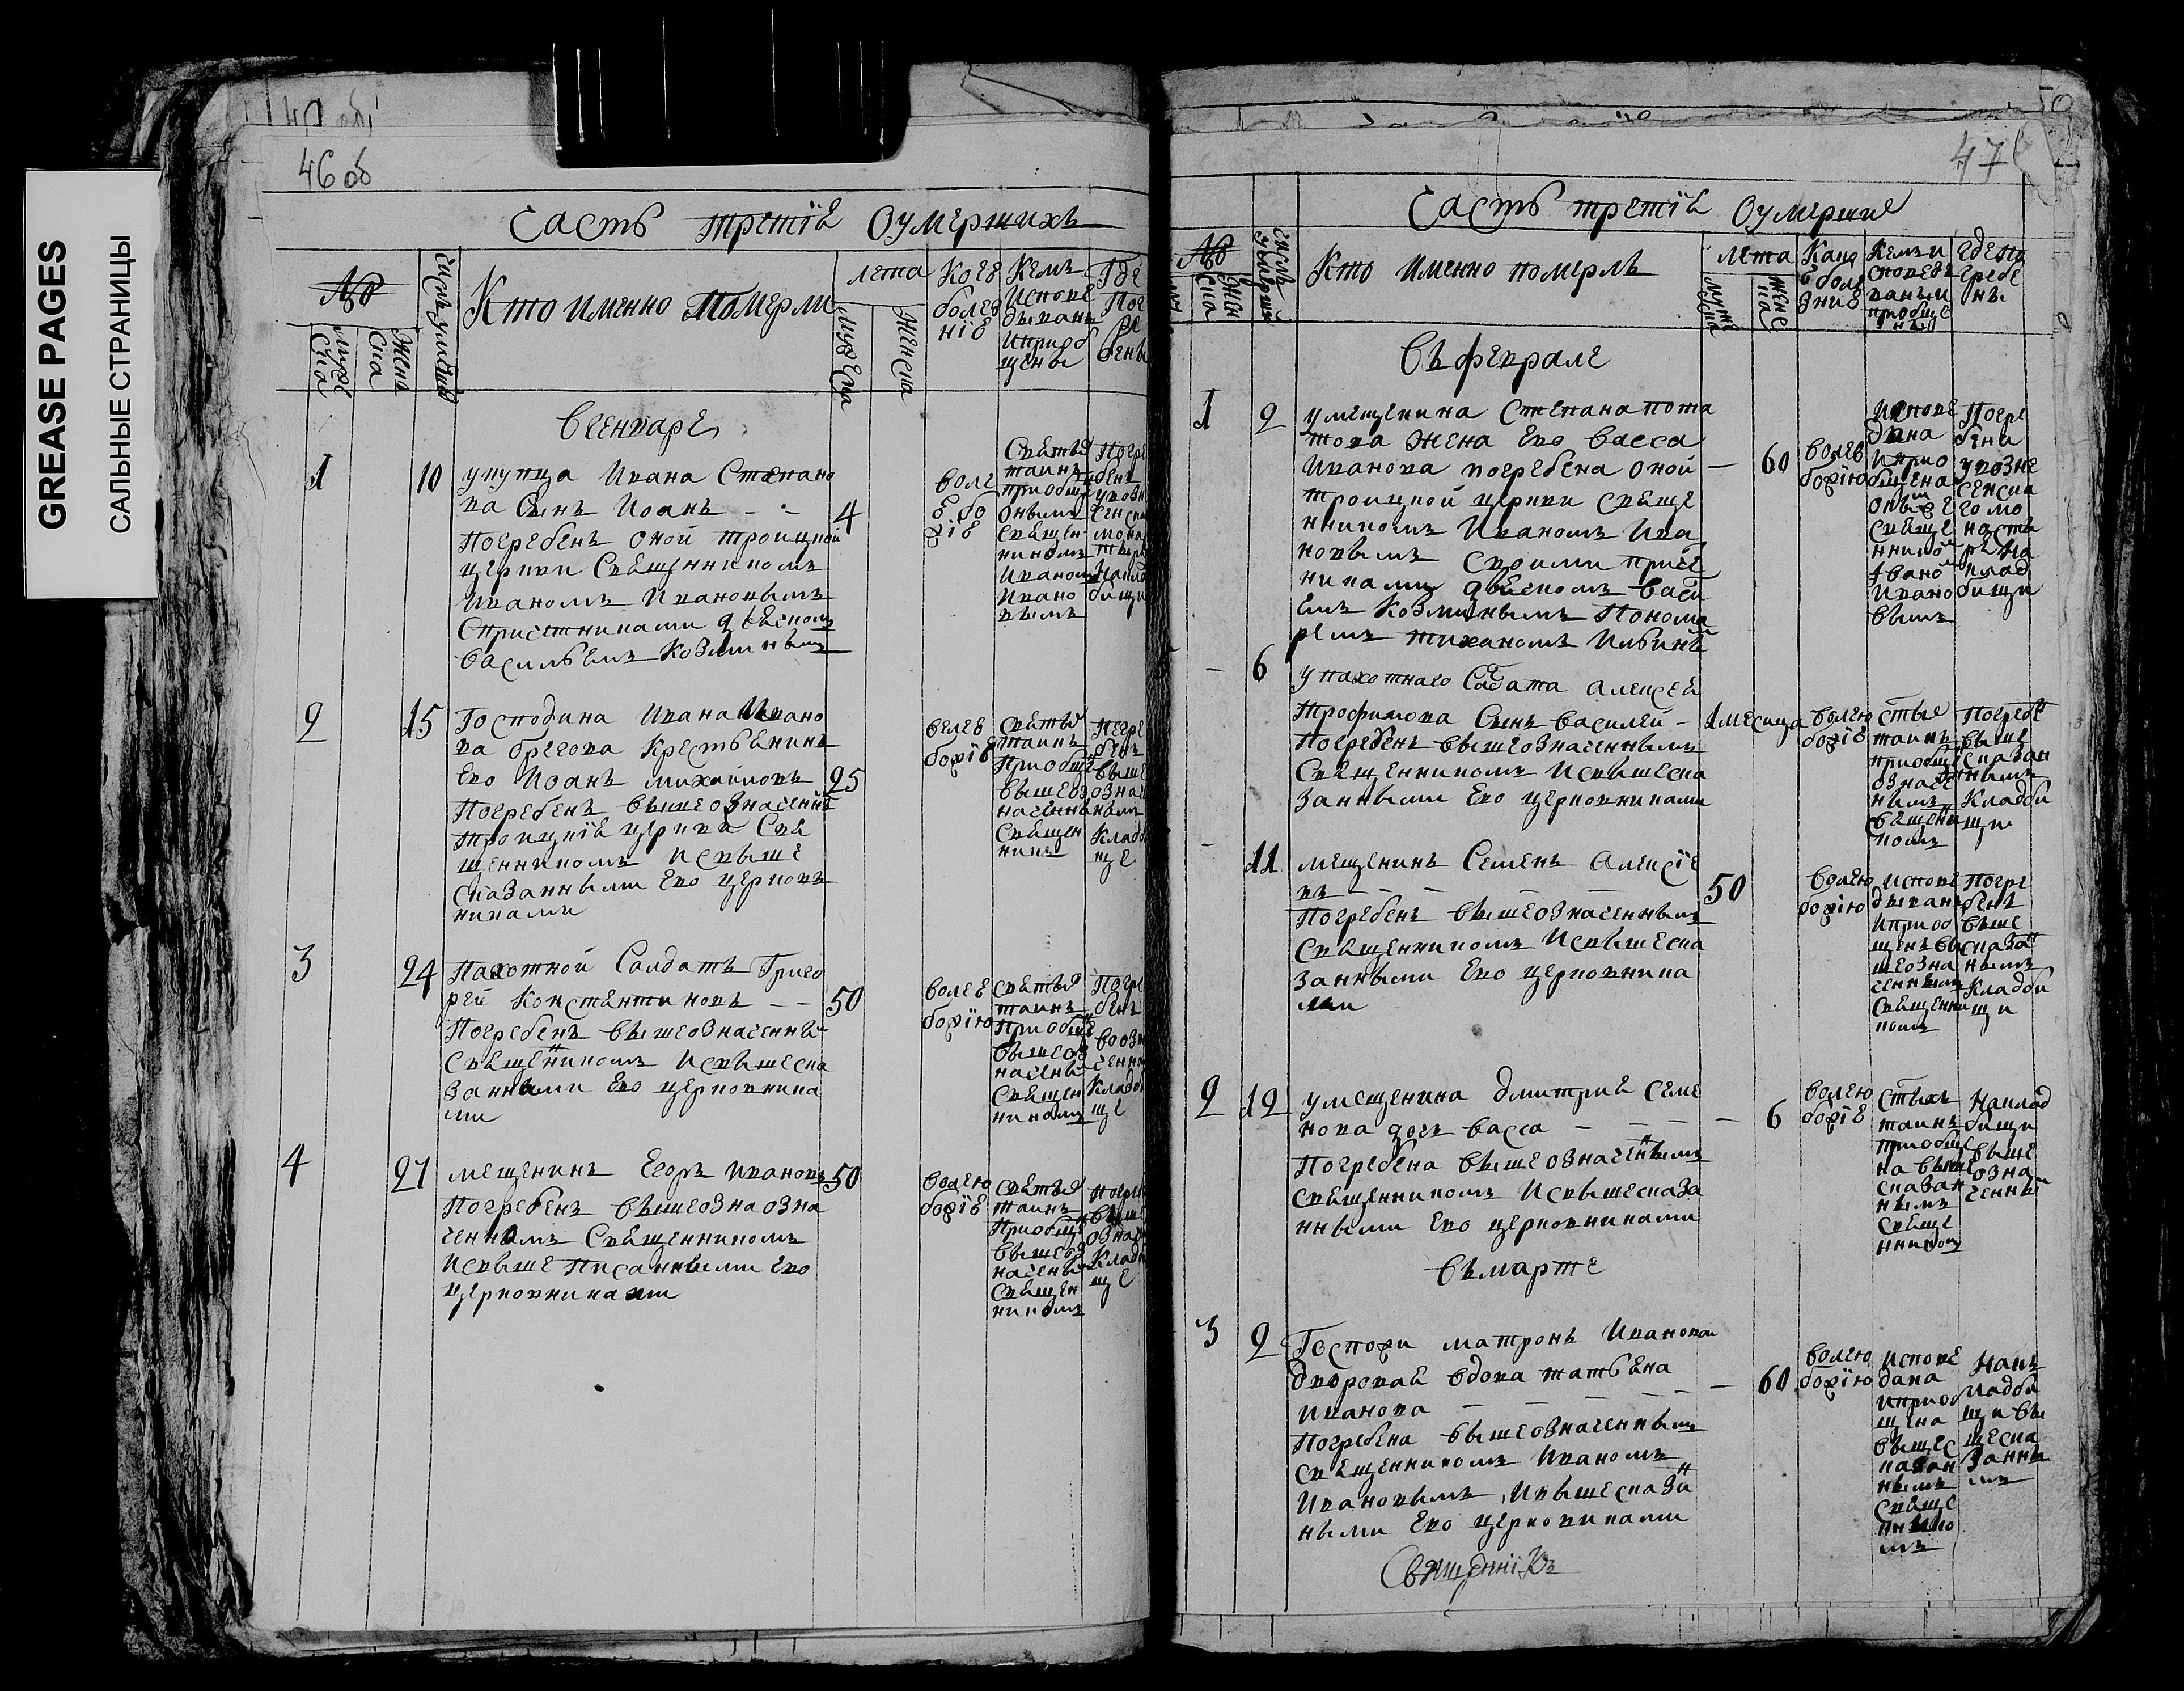 GREASE PAGES
САЛЬНЫЕ СТРАНИЦЫ
46 об
Часть третія Оумершихъ
№
мужеска
женска
число умерших
Кто именно Померли
лета
мужеска
женска
Коей болезніе
Кемъ исповедываны и приобщены
Где погребены
Вгенваре
1
10
у купца Ивана Степано
ва Сынъ Иоанъ - -
4
Погребенъ оной троицкой
церкви Священникомъ
Иваномъ Ивановымъ
Спричетниками дьячкомъ
Васильемъ Козминымъ
волею божіе
Святыхъ таинъ приобщенъ онымъ священникомъ Иваномъ Ивановымъ
2
15
Господина Ивана Ивано
ва брегова Крестьянинъ
Его Иоанъ михайловъ
25
Погребенъ вышеозначенны
троицкія церкви Свя
щенникомъ Исвыше
сказанными Его церковъ
никами
Святыхъ таинъ приобщенъ вышеозначеннымъ Священникъ
Кладбище
3
24
Пахотной Салдатъ Григо
рей Константиновъ - -
50
Погребенъ вышеозначенны
Священникомъ Исвышеска
занными Его церковника
ми
волее божіею
Святыхъ таинъ приобщенъ вышеозначены Священникомъ
4
27
мещенинъ Егоръ Ивановъ
50
Погребенъ вышеозна озна
ченнымъ Священникомъ
Исвыше Писанными Его
церковниками
волею божіе
Святыхъ таинъ приобщенъ вышеозначены Священникомъ
47
Часть третія Оумершие
№
женска
число умерших
Кто именно померлъ
лета
мужска
женска
Какою болезние
Кемъ исповедываны и приобщены
где погребены
Въ феврале
1
2
у мещенина Степана пота
това жена Его Васса
Иванова погребена оной
- 60
троицкой церкви Свяще
нникомъ Иваномъ Ива
новымъ Своими приче
никами дьячкомъ Васи
емъ Козминымъ Понома
ремъ тиханомъ Ильины
волею божіею
Исповедана и приобщена оны Священнико Ивано Ивановымъ
Погребена у Вознесенскаго монастыря на кладбищи
-
6
у пахотнаго Салдата Алексея
Трофимова Сынъ Василей -
1 месица
Погребенъ вышеозначеннымъ
Священникомъ Исвышеска
занными Его церковниками
волею божіе
Стыхъ таинъ приобщенъ означенымъ Священникомъ
Погребенъ вышесказаннымъ Кладбищи
-
11
мещенинъ Семенъ Алексіе
въ - - - -
50
Погребенъ вышеозначеннымъ
Священникомъ Исвышеска
занными Его церковника
ми
волею божіею
Исповедыванъ и приобщенъ вышеозначеннымъ Священникомъ
Погребенъ вышесказанымъ Кладбищи
2
12
у мещенина дмитрия Семе
нова дочь Васса - - - -
6
Погребена вышеозначеннымъ
Священникомъ Исвышесказа
нными Его церковниками
волею божіе
Стыхъ таинъ приобщена вышесказаннымъ Священникомъ
На кладбищи вышеозначенны
Въ марте
3
2
Госпожи матроны Ивановой
дворовая вдова татьяна
Иванова - - - -
60
Погребена вышеозначеннымъ
Священникомъ Иваномъ
Ивановымъ, Ивышесказа
ными Его церковниками
волею божіею
Исповедана и приобщена вышесказаннымъ Священникомъ
На кладбищи вышесказаннымъ
Священнікъ